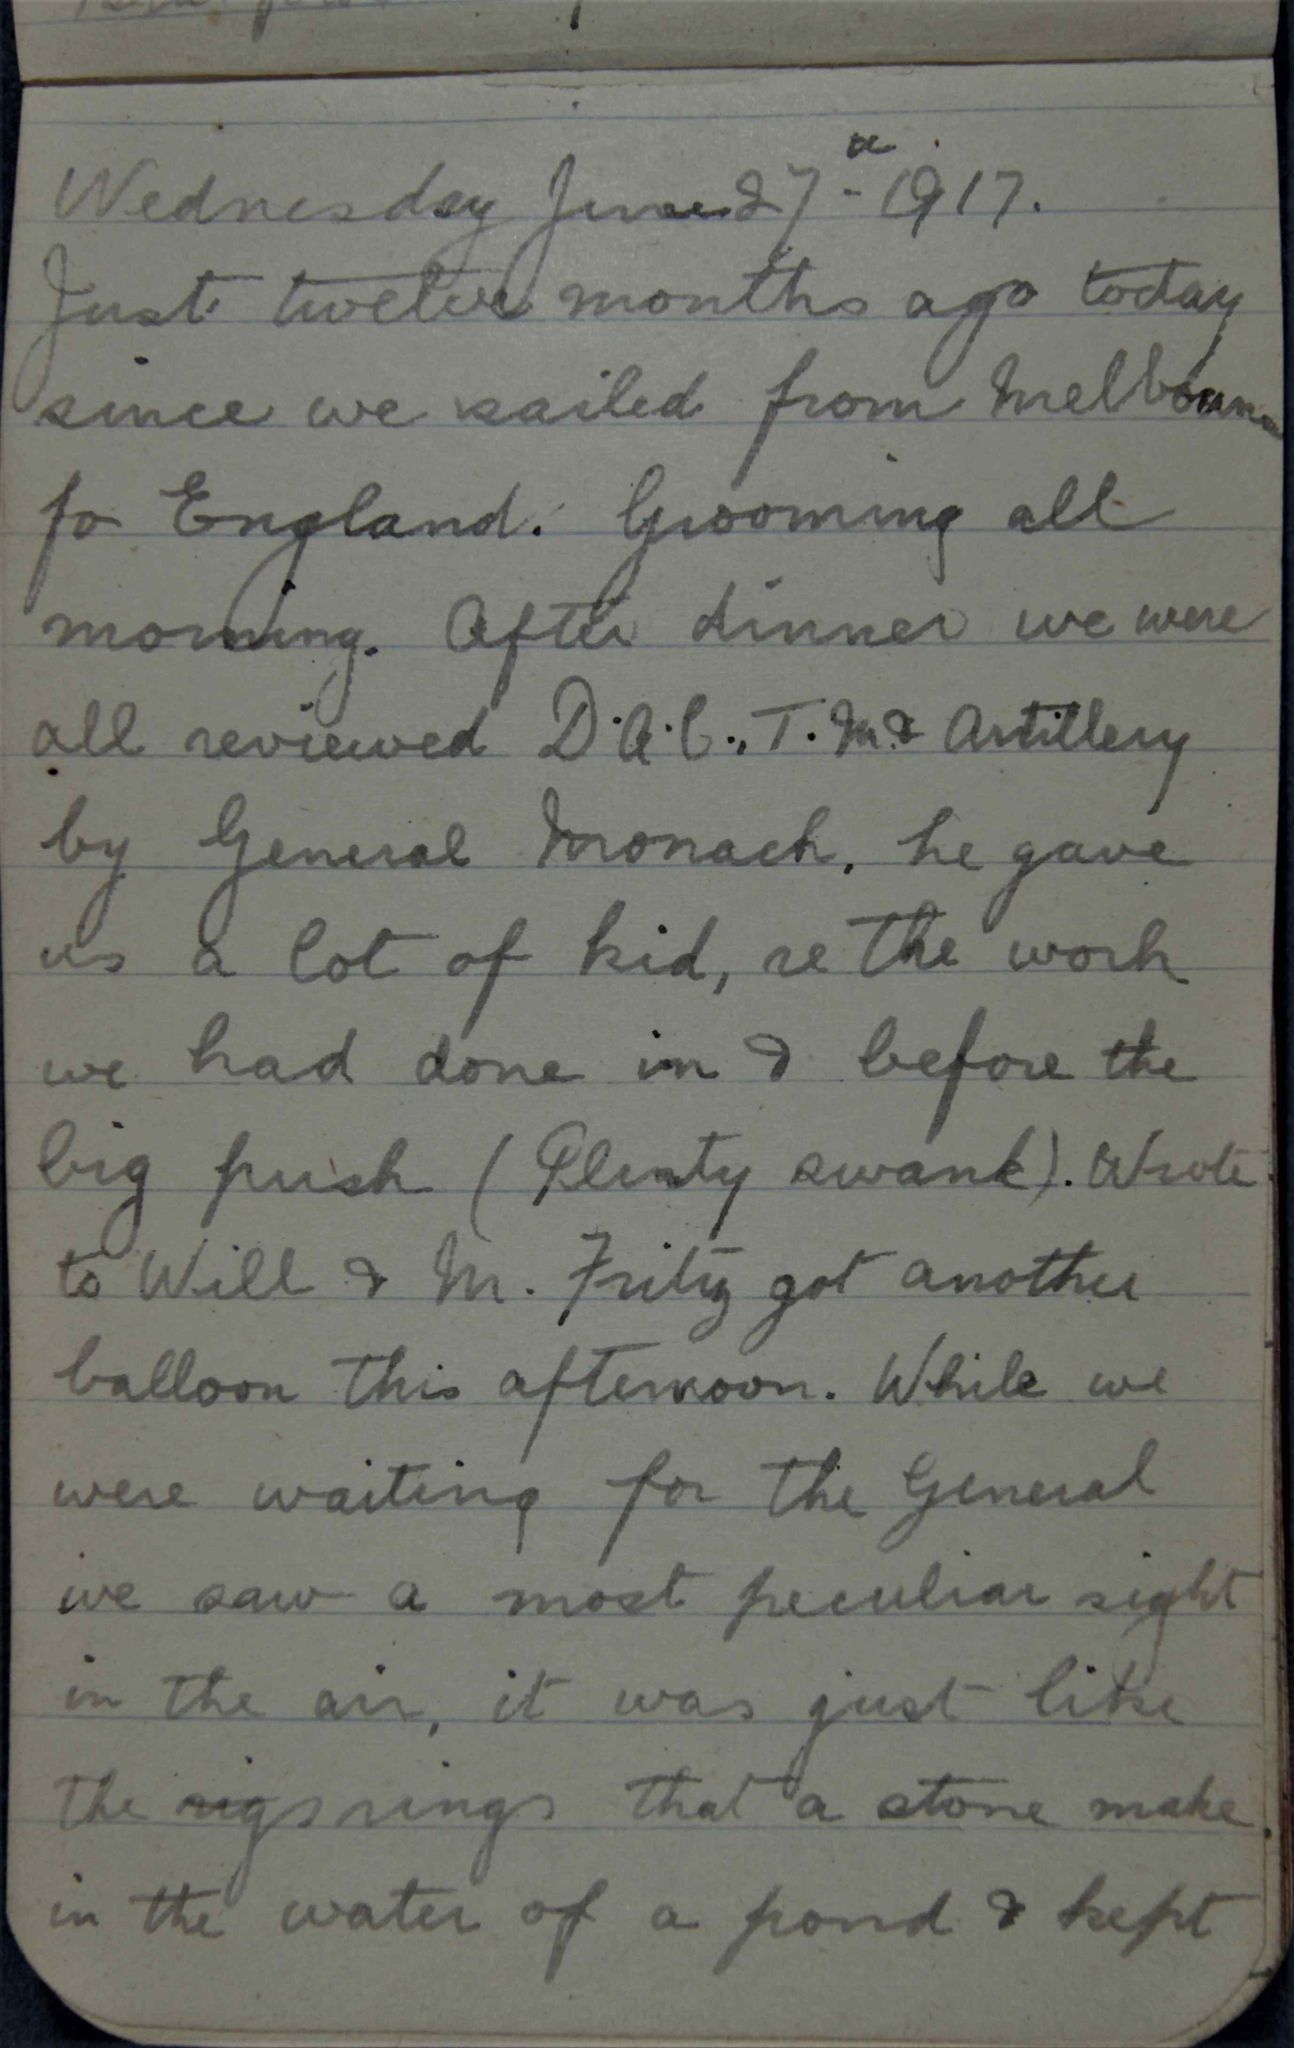 Wednesday June 27th 1917.
Just twelve months ago today
since we sailed from Melbourne
for England. Grooming all
morning. After dinner we were
all reviewed D.A.C., T.M. & Artillery
by General Monach, he gave
us a lot of kid, re the work
we had done in & before the
big push (Plenty swank). Wrote
to Will & M. Fritz got another
balloon this afternoon. While we
were waiting for the General
we saw a most peculiar sight
in the air, it was just like
the rigs rings that a stone make
in the water of a pond & kept